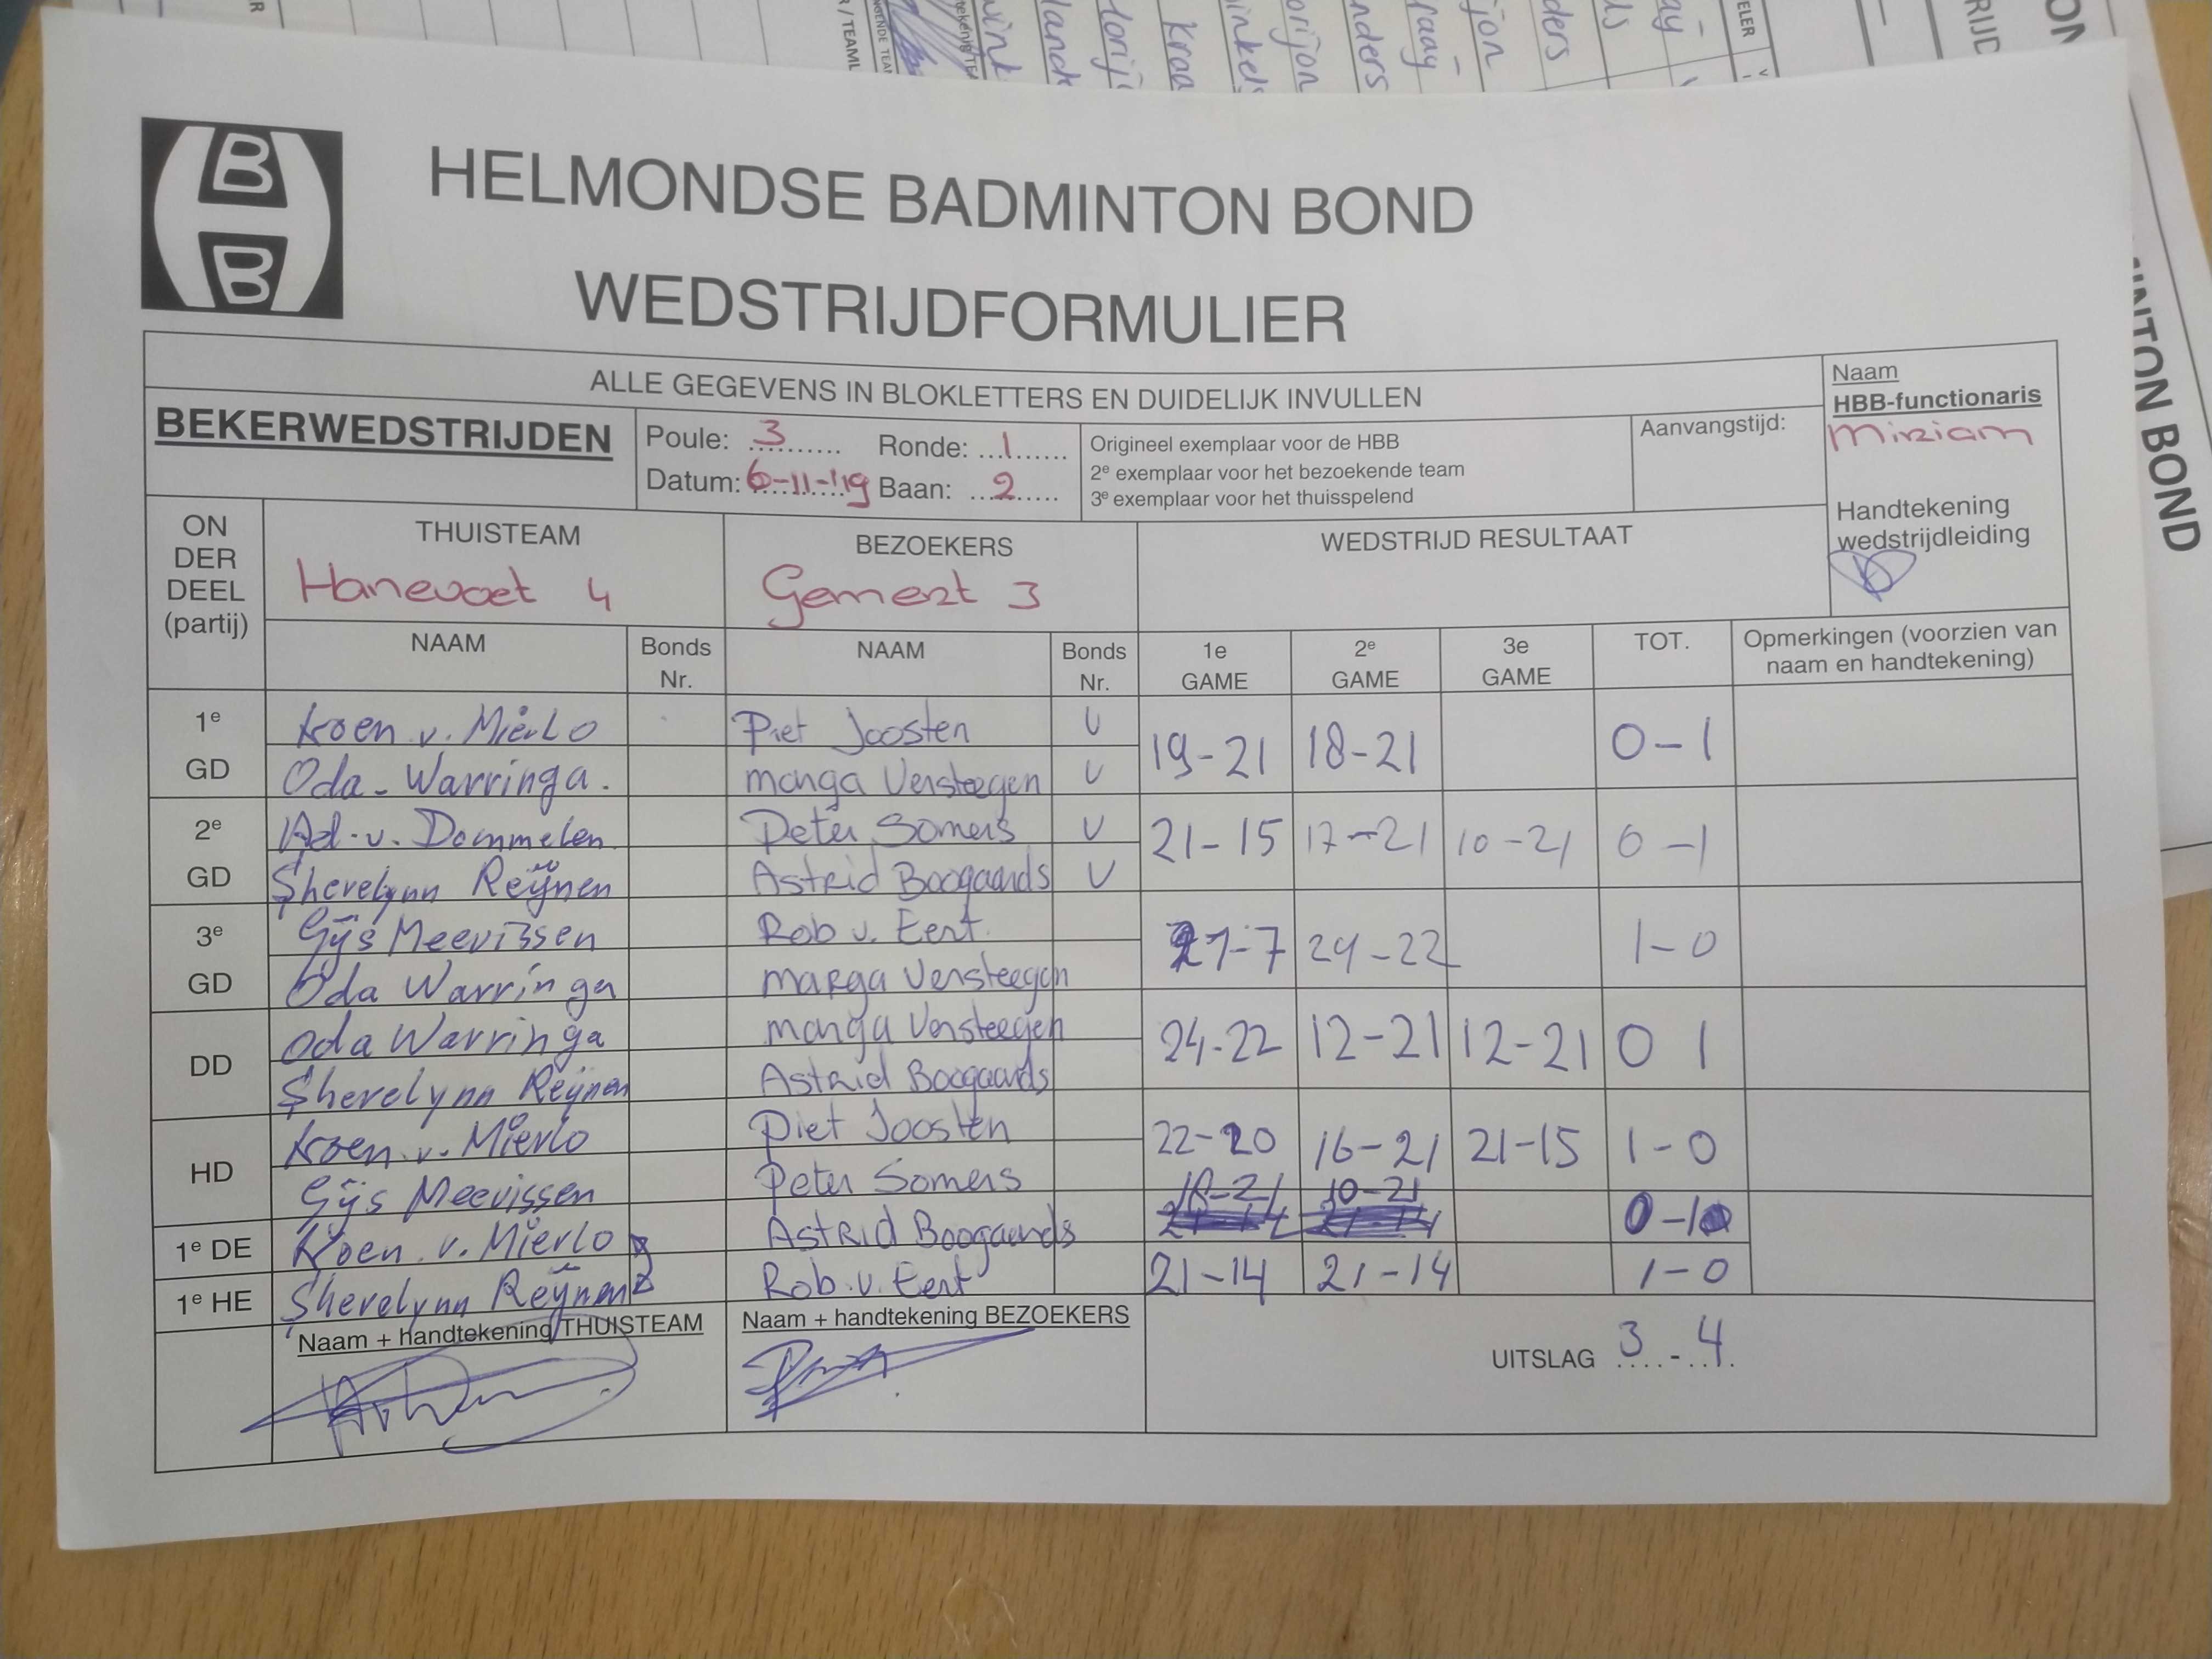 HELMONDSE BADMINTON BOND
WEDSTRIJDFORMULIER
ALLE GEGEVENS IN BLOKLETTERS EN DUIDELIJK INVULLEN
Naam
HBB-functionaris
Miriam
BEKERWEDSTRIJDEN
Poule: 3 Ronde: 1
Datum: 6-11-'19 Baan: 2
Origineel exemplaar voor de HBB
2e exemplaar voor het bezoekende team
3e exemplaar voor het thuisspelend
Aanvangstijd:
Handtekening
wedstrijdleiding
ON
DER
DEEL
(partij)
THUISTEAM
Hanevoet 4
BEZOEKERS
Gemert 3
WEDSTRIJD RESULTAAT
NAAM Bonds Nr. NAAM Bonds Nr. 1e GAME 2e GAME 3e GAME TOT. Opmerkingen (voorzien van naam en handtekening)
1e GD
Koen v. Mierlo Piet Joosten V
Oda - Warringa. Marga Versteegen V
19-21 18-21 0-1
2e GD
Ad. v. Dommelen Peter Somers V
Sherelynn Reijnen Astrid Boogaards V
21-15 17-21 10-21 0-1
3e GD
Gijs Meevissen Rob v. Eert.
Oda Warringa Marga Versteegen
21-7 24-22 1-0
DD
Oda Warringa Marga Versteegen
Sherelynn Reijnen Astrid Boogaards
24-22 12-21 12-21 0 1
HD
Koen. v. Mierlo Piet Joosten
Gijs Meevissen Peter Somers
22-20 16-21 21-15 1-0
1e DE Koen. v. Mierlo Astrid Boogaards 10-21 0-1
1e HE Sherelynn Reijnen Rob. v. Eert 21-14 21-14 1-0
Naam + handtekening THUISTEAM
Naam + handtekening BEZOEKERS
UITSLAG 3 - 4
MINTON BOND